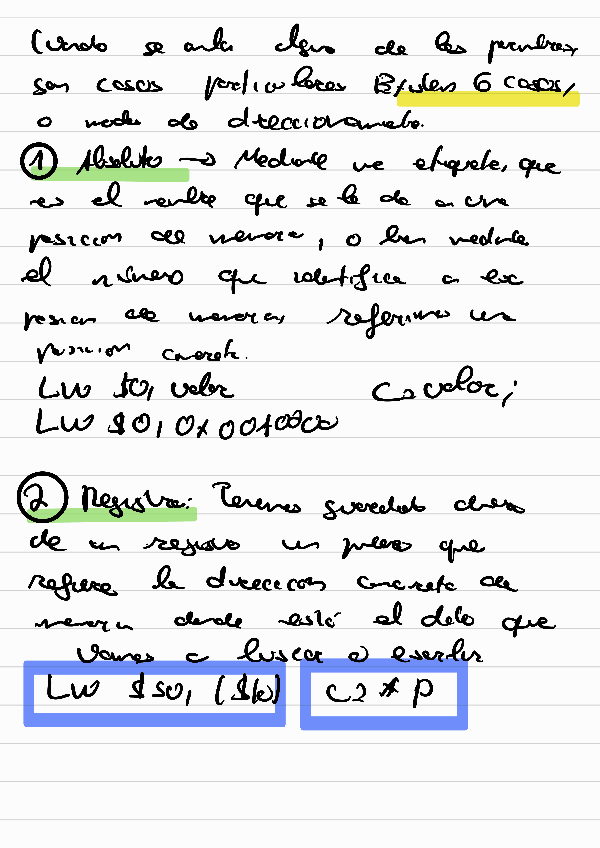 Cuando se anula alguno de los parámetros,
son casos particulares Existen 6 casos,
o modos de direccionamiento.
① Absoluto → Mediante una etiqueta, que
es el nombre que se le da a una
posición de memoria, o bien mediante
el número que identifica a esa
posición de memoria, referimos una
posición concreta.
LW $0, valor C=valor;
LW $0, 0x0040000
② Registro: Tenemos guardado dentro
de un registro un puntero que
refiere la dirección concreta de
memoria donde está el dato que
vamos a buscar o escribir
LW $s0, ($t0) C = *p